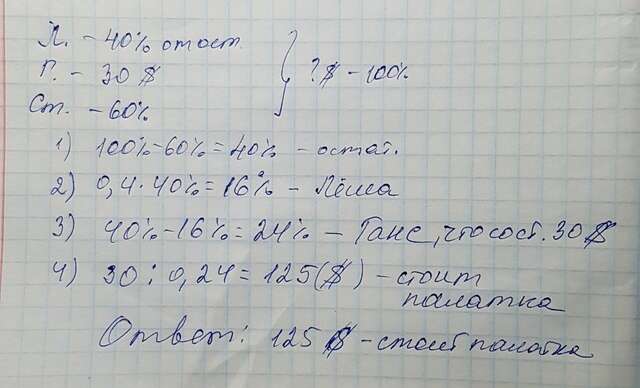 Л. - 40% от ост.
Г. - 30 $ } ? $ - 100%
Ст. - 60%
1) 100% - 60% = 40% - остат.
2) 0,4 · 40% = 16% - Лёша
3) 40% - 16% = 24% - Ганс, что сост. 30 $
4) 30 : 0,24 = 125 ($) - стоит
палатка
Ответ: 125 $ - стоит палатка